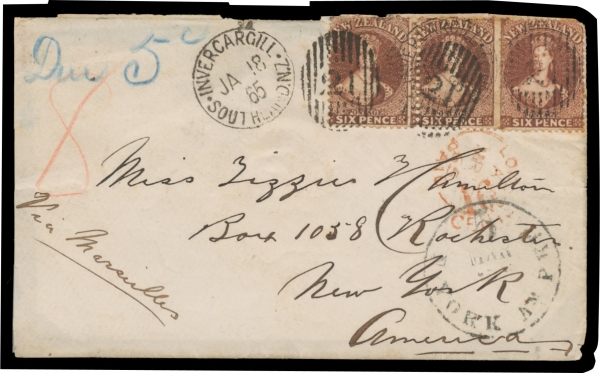 Due 5c
INVERCARGILL·
JA 18
65
·SOUTHLAND·N.Z
NEW ZEALAND
SIX PENCE
NEW ZEALAND
SIX PENCE
NEW ZEALAND
SIX PENCE
21
21
8
Miss Lizzie Hamilton
Box 1058 Rochester
New York
America
Via Marseilles
PAID